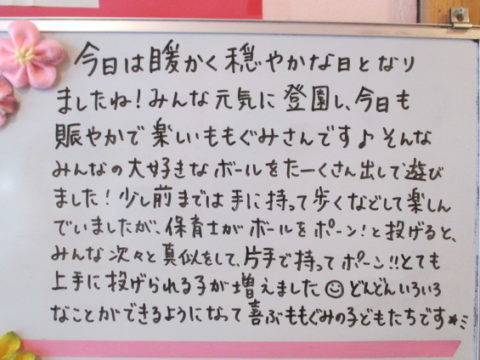 今日は暖かく穏やかな日となり
ましたね!みんな元気に登園し、今日も
賑やかで楽しいももぐみさんです♪そんな
みんなの大好きなボールをたーくさん出して遊び
ました!少し前までは手に持って歩くなどして楽しん
でいましたが、保育士がボールをポーン!と投げると、
みんな次々と真似をして、片手で持ってポーン!!とても
上手に投げられる子が増えました☺どんどんいろいろ
なことができるようになって喜ぶももぐみの子どもたちです*ミ